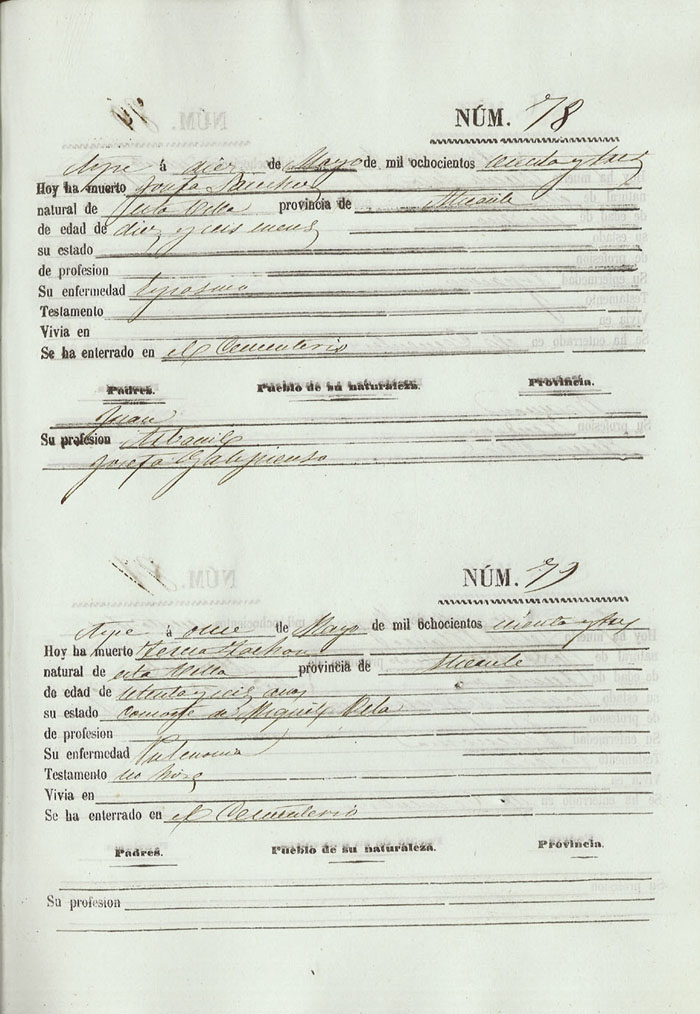 NÚM. 78
Aspe á diez de Mayo de mil ochocientos cincuenta y tres
Hoy ha muerto Josefa Sanchez
natural de esta Villa provincia de Alicante
de edad de diez y seis meses
su estado
de profesion
Su enfermedad
Testamento
Vivia en
Se ha enterrado en el Cementerio
Padres. Pueblo de su naturaleza. Provincia.
Juan
Su profesion Albañil
Josefa Galipienso
NÚM. 79
Aspe á once de Mayo de mil ochocientos cincuenta y tres
Hoy ha muerto Teresa
natural de esta Villa provincia de Alicante
de edad de y seis años
su estado consorte de Miguel Vela
de profesion
Su enfermedad Pulmonia
Testamento no hizo
Vivia en
Se ha enterrado en el Cementerio
Padres. Pueblo de su naturaleza. Provincia.
Su profesion